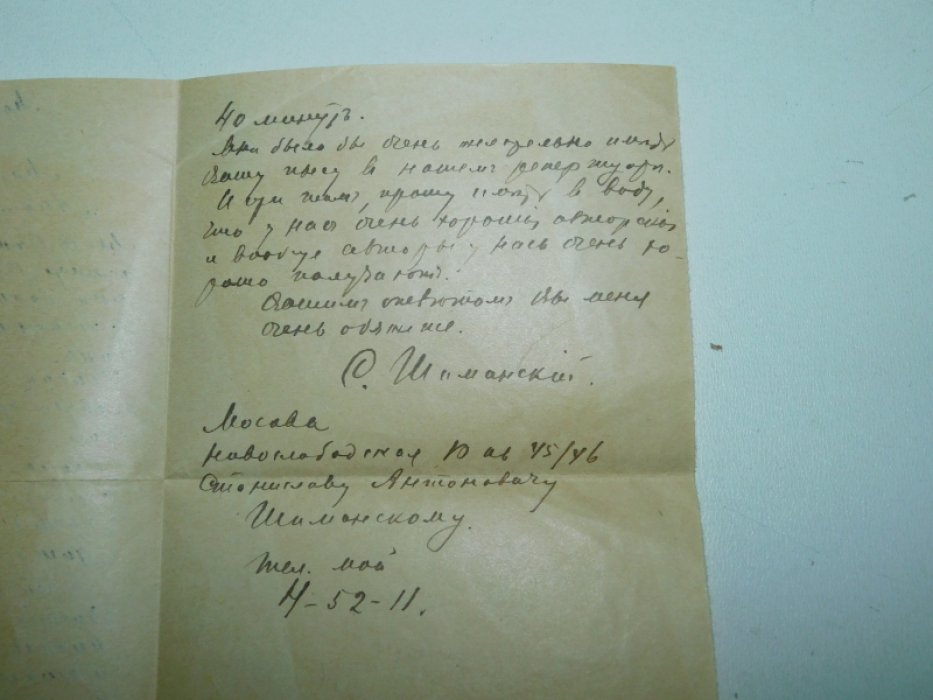 40 минутъ.
Мнѣ было бы очень желательно имѣть
Вашу пьесу в нашемъ репертуарѣ.
И при томъ, прошу имѣть в виду,
что у насъ очень хорошій авторскій
и вообще авторы у насъ очень хо-
рошо получаютъ.
Вашимъ отвѣтомъ Вы меня
очень обяжете.
С. Шиманскій.
Москва
Новослободская 10 кв 45/46
Станиславу Антоновичу
Шиманскому.
тел. мой
4-52-11.